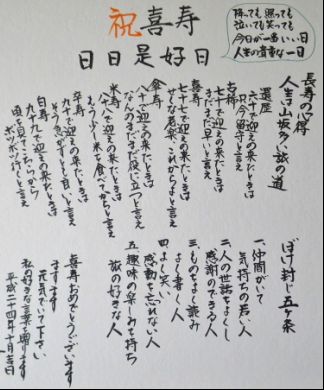 祝喜寿
日日是好日
降っても照っても
泣いても笑っても
今日が一番いい日
人生の貴重な一日
長寿の心得
人生は山坂多い旅の道
還暦
六十で迎えの来たときは
只今留守と言え
古稀
七十で迎えの来たときは
まだまだ早いと言え
喜寿
七十七で迎えの来たときは
せくな老楽これからよと言え
傘寿
八十で迎えの来たときは
なんのまだまだ役に立つと言え
米寿
八十八で迎えの来たときは
もう少し米を食べてからと言え
卒寿
九十で迎えの来たときは
そう急がずともよいと言え
白寿
九十九で迎えの来たときは
頃を見てこちらから
ボツボツ行くと言え
ぼけ封じ五ヶ条
一、仲間がいて
気持ちの若い人
二、人の世話をよくし
感謝のできる人
三、ものをよく読み
よく書く人
四、よく笑い
感動を忘れない人
五、趣味の楽しみを持ち
旅の好きな人
喜寿おめでとうございます
ますます
元気でいて下さい
私の好きな言葉を贈ります
平成二十四年十月吉日